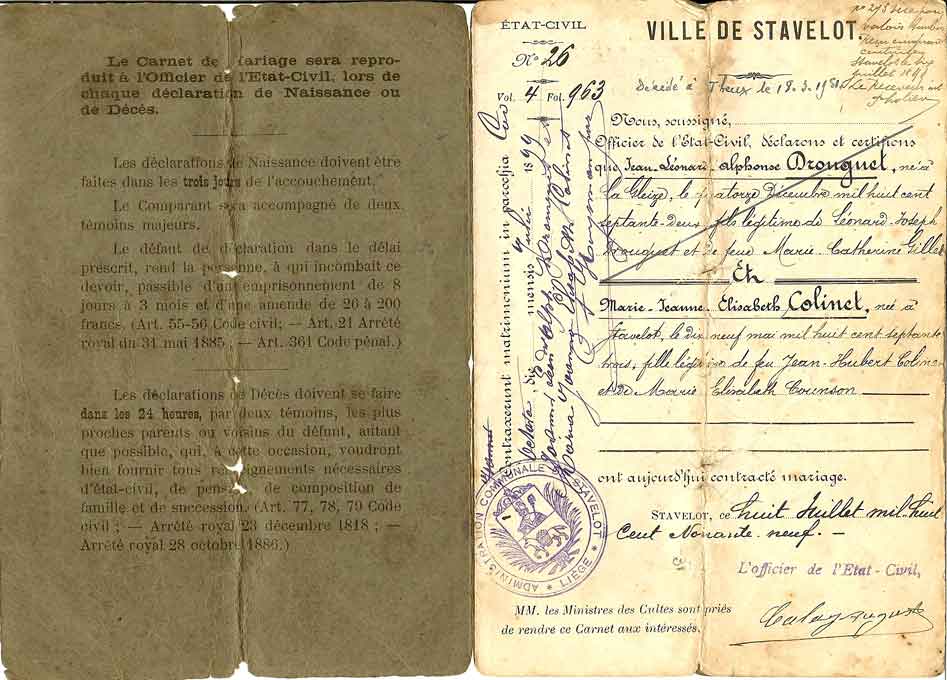 Le Carnet de Mariage sera repro-
duit à l'Officier de l'Etat-Civil, lors de
chaque déclaration de Naissance ou
de Décès.
Les déclarations de Naissance doivent être
faites dans les trois jours de l'accouchement.
Le Comparant sera accompagné de deux
témoins majeurs.
Le défaut de déclaration dans le délai
prescrit, rend la personne, à qui incombait ce
devoir, passible d'un emprisonnement de 8
jours à 3 mois et d'une amende de 26 à 200
francs. (Art. 55-56 Code civil; — Art. 21 Arrêté
royal du 31 mai 1885; — Art. 361 Code pénal.)
Les déclarations de Décès doivent se faire
dans les 24 heures, par deux témoins, les plus
proches parents ou voisins du défunt, autant
que possible, qui, à cette occasion, voudront
bien fournir tous renseignements nécessaires
d'état-civil, de pension, de composition de
famille et de succession. (Art. 77, 78, 79 Code
civil; — Arrêté royal 23 décembre 1818; —
Arrêté royal 28 octobre 1886.)
ÉTAT-CIVIL
VILLE DE STAVELOT.
N° 26
Vol. 4 Fol. 963
Décédé à Theux le
Nous, soussigné,
Officier de l'État-Civil, déclarons et certifions
que Jean-Léonard-Alphonse Drouguet, né à
La Gleize, le quatorze Décembre mil huit cent
septante-deux fils légitime de Léonard-Joseph
Drouguet et de feue Marie-Catherine Gillet
Et
Marie-Jeanne-Elisabeth Colinet, née à
Stavelot, le dix neuf mai mil huit cent septante
trois, fille légitime de feu Jean-Hubert Colinet
et de Marie Elisabeth Counson
ont aujourd'hui contracté mariage.
STAVELOT, ce huit Juillet mil-huit
Cent Nonante-neuf. —
L'officier de l'Etat-Civil,
MM. les Ministres des Cultes sont priés
de rendre ce Carnet aux intéressés.
Contraxerunt matrimonium in parochia
die mensis 1899
ADMINISTRATION COMMUNALE STAVELOT
LIÈGE